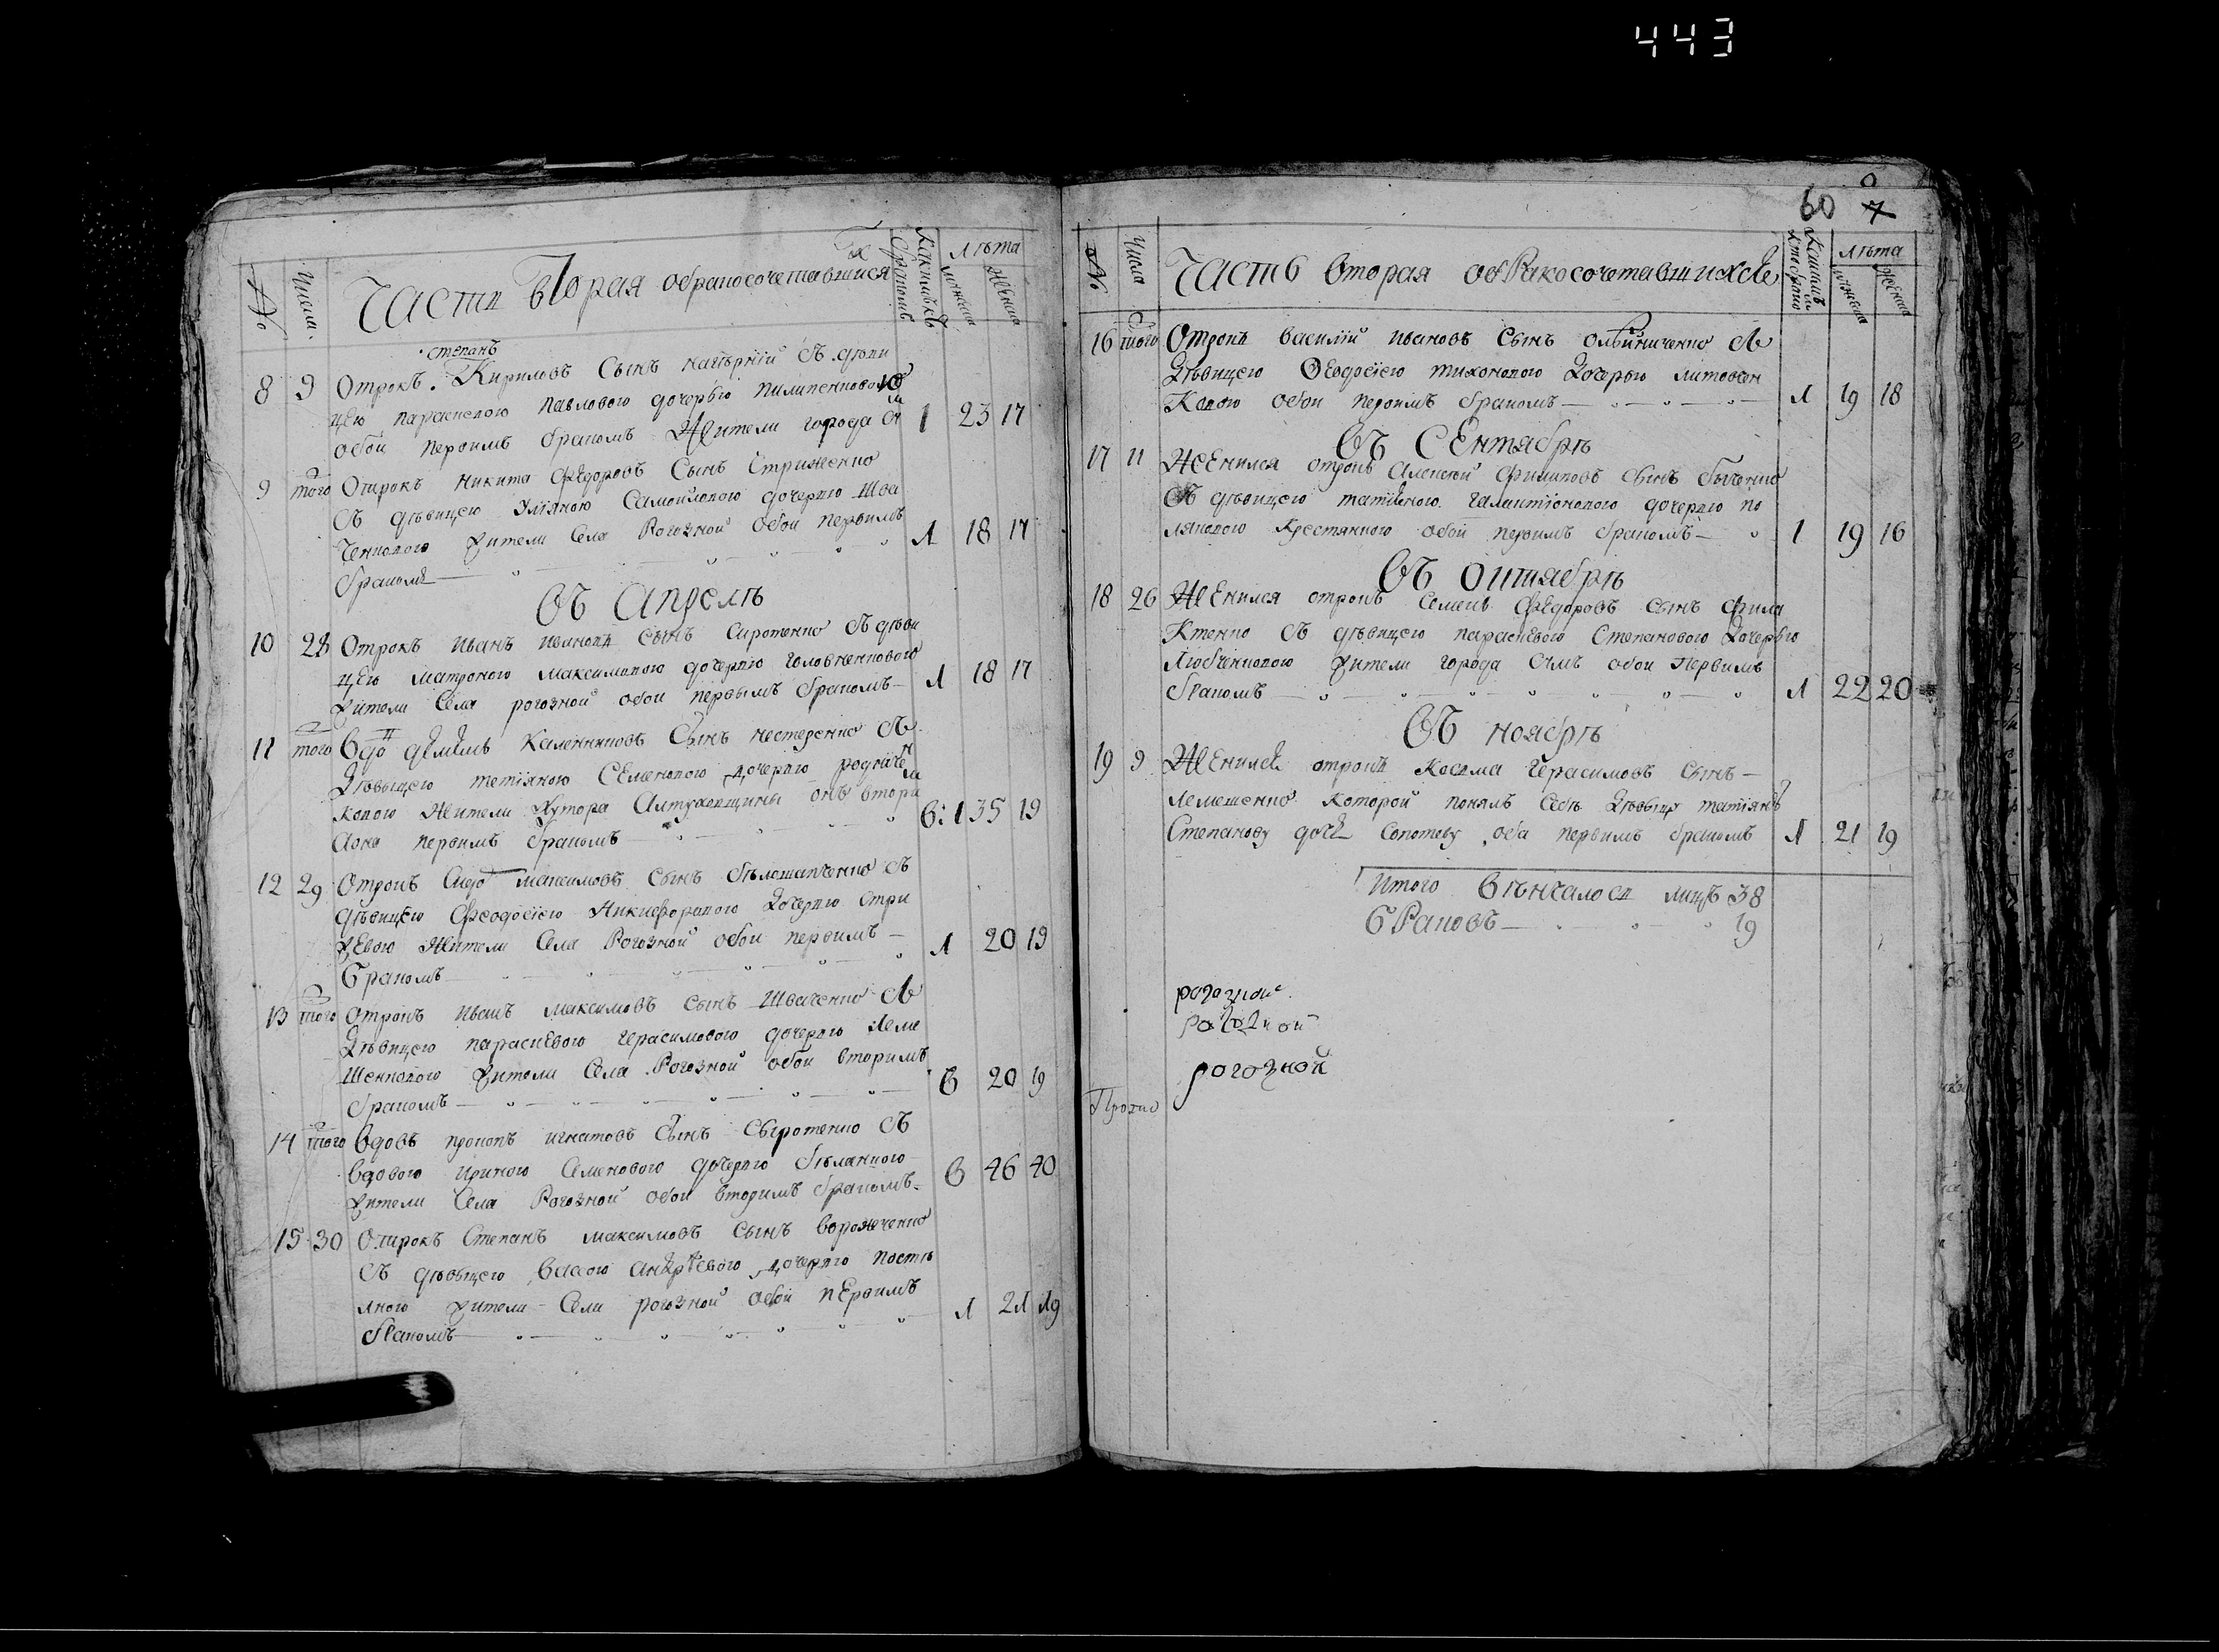 443
№
Числа
Части вторая обракосочетавшися
х
Какимъ бракомъ
Лѣта
мужска
женска
степанъ
8 9 Отрокъ Кириловъ Сынъ Съ дѣви
цею параскевою павловою дочерью пилипенковою
обои первимъ бракомъ Жители города 1 23 17
9 того Отрокъ никита Федоровъ Сынъ Стриженко
Съ дѣвицею Улiяною Самойловою дочерю Шва
ченковою жители Села Рогозной обои первимъ 1 18 17
бракомъ
Въ Апрелѣ
10 28 Отрокъ иванъ ивановъ сынъ Сиротенко Съ дѣви
цею матроною максимовою дочерю головненковою
жители Села рогозной обои первымъ бракомъ 1 18 17
11 того Вдо Каленниковъ Сынъ нестеренко Съ
Дѣвицею татiяною Семеновою дочерю
ковою жители Хутора Алтуховщины онъ втори
Аона первимъ бракомъ в: 1 35 19
12 29 Отрокъ максимовъ Сынъ бѣлошапченко Съ
дѣвицею Феодосiею Никифоровою Дочерю Стри
жевою жители Села Рогозной обои первимъ 1 20 19
Бракомъ
13 того Отрокъ иванъ максимовъ сынъ Шваченко Съ
Дѣвицею параскевою герасимовою дочерю Леме
шенковою жители Села Рогозной обои вторимъ в 20 19
бракомъ
14 того Вдовъ прокопъ игнатовъ Сынъ Сыротенко Съ
вдовою ириною Семеновою дочерю бѣланкою
жители Села Рогозной обои вторимъ бракомъ в 46 40
15 30 Отрокъ Степанъ максимовъ Сынъ Ворожченко
Съ дѣвицею васою андрѣевою дочерю постѣ
лною жители Сели рогозной обои первимъ
бракомъ 1 21 19
60 7
№
Числа
Часть вторая обракосочетавшихся
Лѣта
мужска
женска
16 того Отрокъ василiй ивановъ Сынъ Съ
Дѣвицею Феодосiею тихоновою Дочерью литовчен
Ковою обои первимъ бракомъ 1 19 18
Въ Сентябрѣ
17 11 Женился отрокъ алексей Филиповъ Сынъ
Съ дѣвицею татiяною галактiоновою дочерю по
ляковою Крестянкою обои первимъ бракомъ 1 19 16
Въ Октябрѣ
18 26 Женился отрокъ Семенъ Федоровъ сынъ Фила
Ктенко Съ дѣвицею параскевою Степановою Дочерью
Любченковою жители города Сумъ обои Первимъ
бракомъ 1 22 20
Въ ноябрѣ
19 9 Женился отрокъ Косма Герасимовъ Сынъ
Лемешенко Который понялъ Себѣ Дѣвицу татiяну
Степанову дочь оба первимъ бракомъ 1 21 19
Итого вѣнчалося лицъ 38
Браковъ 19
рогозной
рогозной
рогозной